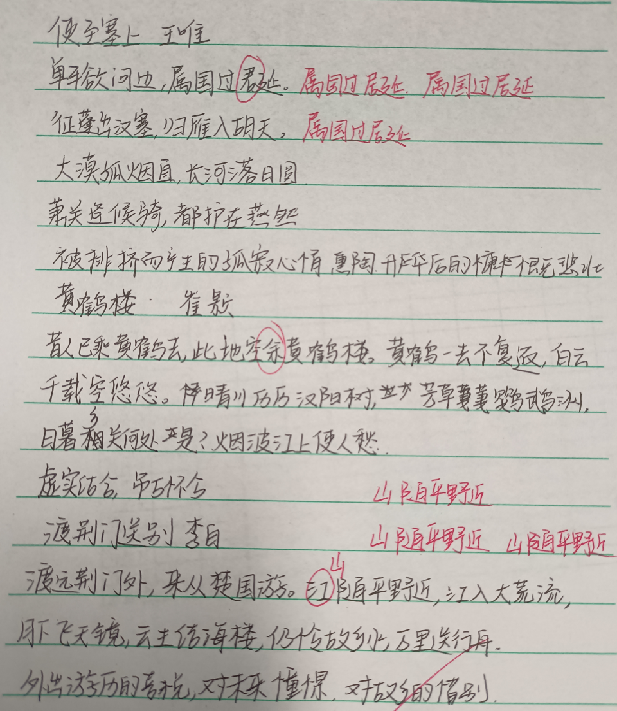 使至塞上 王唯
单车欲问边,属国过君延。属国过居延 属国过居延
征蓬出汉塞,归雁入胡天。属国过居延
大漠孤烟直,长河落日圆
萧关逢候骑,都护在燕然
被排挤而产生的孤寂心情 熏陶 升华后的慷慨悲壮
黄鹤楼·崔颢
昔人已乘黄鹤去,此地空余黄鹤楼。黄鹤一去不复返,白云
千载空悠悠。晴川历历汉阳树,芳草萋萋鹦鹉洲,
日暮乡关何处是?烟波江上使人愁.
虚实结合,吊古怀今 山随平野近
渡荆门送别 李白 山随平野近 山随平野近
渡远荆门外,来从楚国游。江山随平野近,江入大荒流,
月下飞天镜,云生结海楼,仍怜故乡水,万里送行舟.
外出游历的喜悦,对未来憧憬,对故乡的惜别.